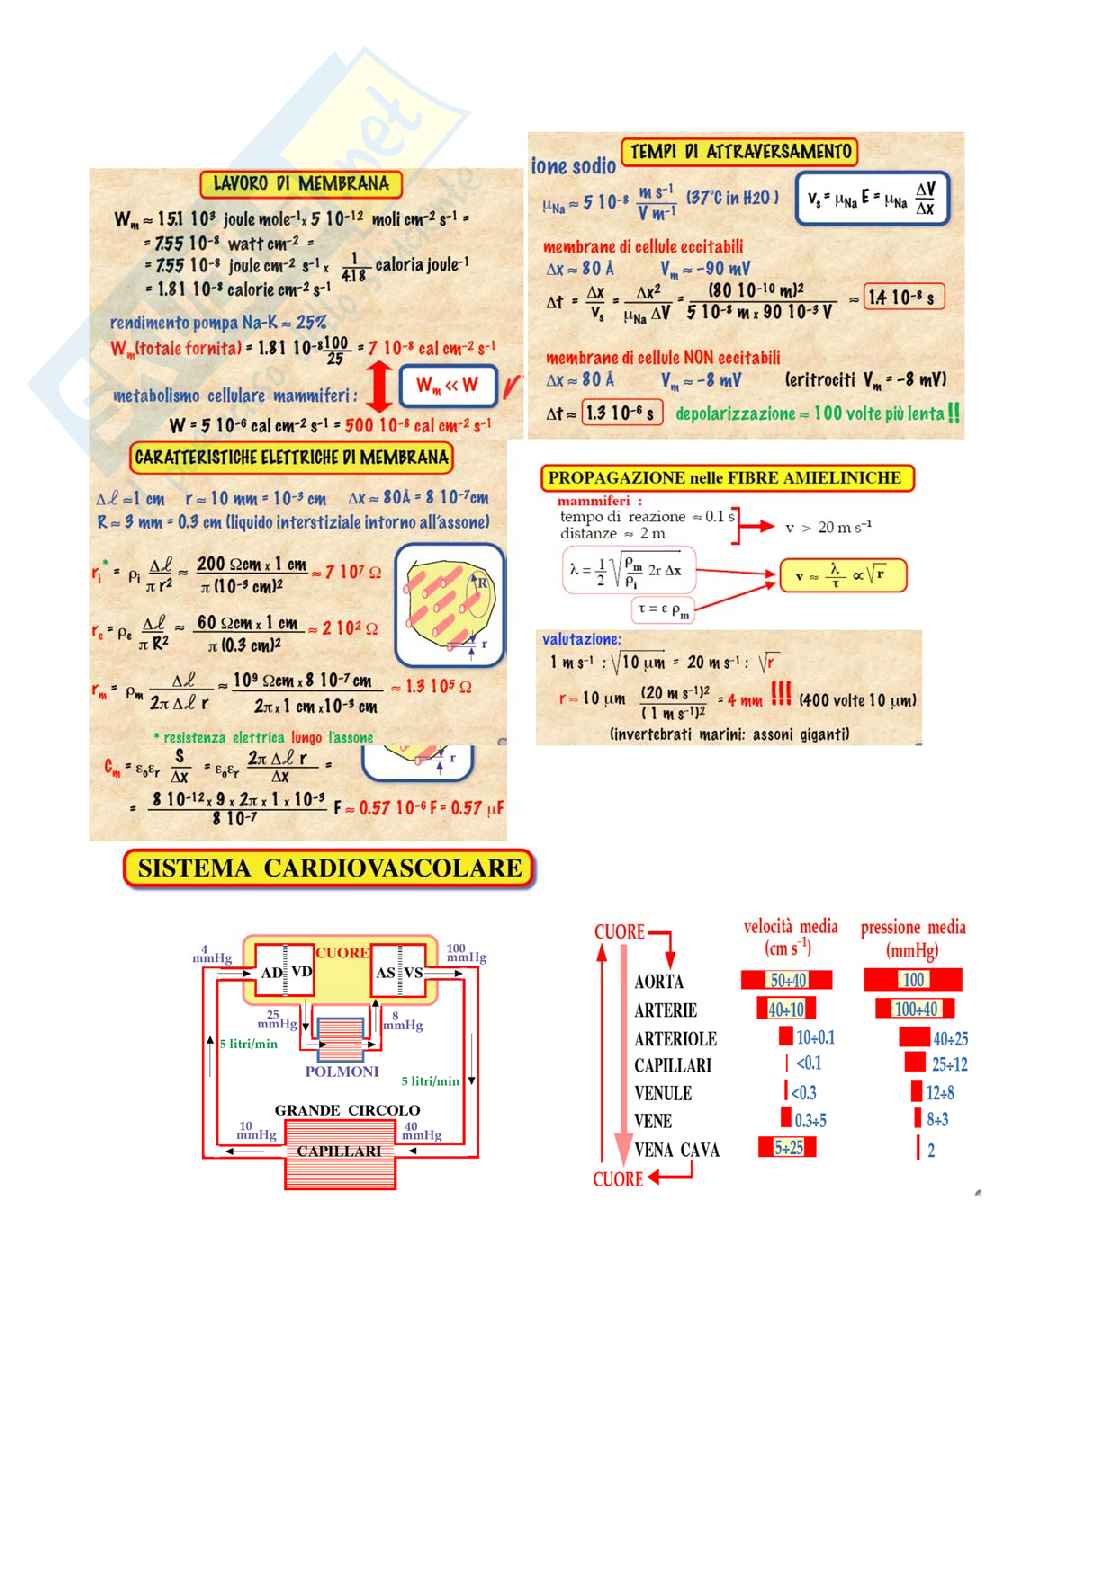 LAVORO DI MEMBRANA
Wm ≈ 15.1 10³ joule mole⁻¹ x 5 10⁻¹² moli cm⁻² s⁻¹ =
= 7.55 10⁻⁸ watt cm⁻² =
= 7.55 10⁻⁸ joule cm⁻² s⁻¹ x 1/4.18 caloria joule⁻¹
= 1.81 10⁻⁸ calorie cm⁻² s⁻¹
rendimento pompa Na-K ≈ 25%
Wm(totale fornita) = 1.81 10⁻⁸ 100/25 = 7 10⁻⁸ cal cm⁻² s⁻¹
Wm << W
metabolismo cellulare mammiferi :
W = 5 10⁻⁶ cal cm⁻² s⁻¹ = 500 10⁻⁸ cal cm⁻² s⁻¹
TEMPI DI ATTRAVERSAMENTO
ione sodio
μNa ≈ 5 10⁻⁸ m s⁻¹/V m⁻¹ (37°C in H2O )
vs = μNa E = μNa ΔV/Δx
membrane di cellule eccitabili
Δx ≈ 80 Å Vm ≈ -90 mV
Δt = Δx/vs = Δx²/μNa ΔV = (80 10⁻¹⁰ m)²/5 10⁻⁸ m x 90 10⁻³ V ≈ 1.4 10⁻⁸ s
membrane di cellule NON eccitabili
Δx ≈ 80 Å Vm ≈ -8 mV (eritrociti Vm = -8 mV)
Δt ≈ 1.3 10⁻⁶ s depolarizzazione ≈ 100 volte più lenta !!
CARATTERISTICHE ELETTRICHE DI MEMBRANA
Δℓ ≈1 cm r ≈ 10 mm = 10⁻³ cm Δx ≈ 80Å = 8 10⁻⁷cm
R ≈ 3 mm = 0.3 cm (liquido interstiziale intorno all'assone)
ri* = ρi Δℓ/π r² ≈ 200 Ωcm x 1 cm/π (10⁻³ cm)² ≈ 7 10⁷ Ω
re = ρe Δℓ/π R² ≈ 60 Ωcm x 1 cm/π (0.3 cm)² ≈ 2 10² Ω
rm = ρm Δℓ/2π Δℓ r ≈ 10⁹ Ωcm x 8 10⁻⁷ cm/2π x 1 cm x10⁻³ cm ≈ 1.3 10⁵ Ω
R
r
* resistenza elettrica lungo l'assone
cm = ε₀εr S/Δx = ε₀εr 2π Δℓ r/Δx =
r
= 8 10⁻¹² x 9 x 2π x 1 x 10⁻³/8 10⁻⁷ F ≈ 0.57 10⁻⁶ F = 0.57 μF
PROPAGAZIONE nelle FIBRE AMIELINICHE
mammiferi :
tempo di reazione ≈ 0.1 s
distanze ≈ 2 m
v > 20 m s⁻¹
λ = 1/2 √(ρm/ρi 2r Δx)
v ≈ λ/τ ∝ √r
τ = ε ρm
valutazione:
1 m s⁻¹ : √10 μm = 20 m s⁻¹ : √r
r = 10 μm (20 m s⁻¹)²/(1 m s⁻¹)² = 4 mm !!! (400 volte 10 μm)
(invertebrati marini: assoni giganti)
SISTEMA CARDIOVASCOLARE
4 mmHg
CUORE
100 mmHg
AD VD AS VS
25 mmHg
8 mmHg
5 litri/min
POLMONI
5 litri/min
GRANDE CIRCOLO
10 mmHg
40 mmHg
CAPILLARI
velocità media (cm s⁻¹)
pressione media (mmHg)
CUORE
AORTA 50÷40 100
ARTERIE 40÷10 100÷40
ARTERIOLE 10÷0.1 40÷25
CAPILLARI <0.1 25÷12
VENULE <0.3 12÷8
VENE 0.3÷5 8÷3
VENA CAVA 5÷25 2
CUORE